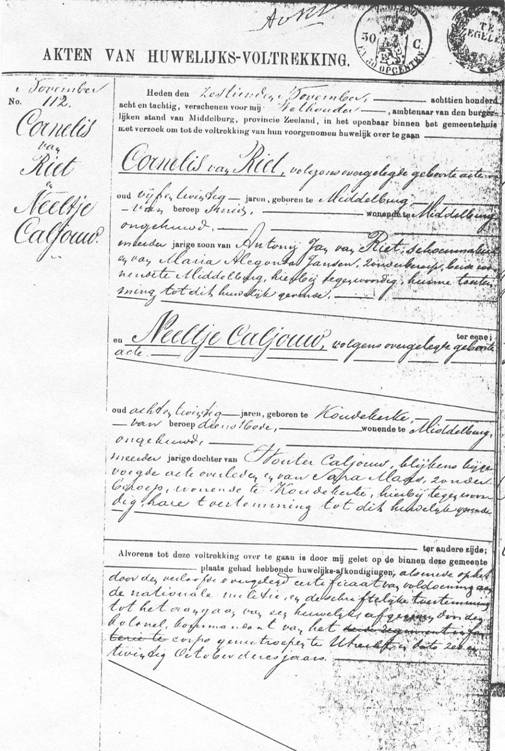 30 C.
EN 38 OPCENTEN
TE
ZEGELEN
AKTEN VAN HUWELIJKS-VOLTREKKING.
November
No. 112.
Cornelis
van
Riet
&
Neeltje
Caljouw.
Heden den zestienden November, achttien honderd
acht en tachtig, verschenen voor mij Wethouder, ambtenaar van den burger-
lijken stand van Middelburg, provincie Zeeland, in het openbaar binnen het gemeentehuis
met verzoek om tot de voltrekking van hun voorgenomen huwelijk over te gaan
Cornelis van Riet, volgens overgelegde geboorte acte
oud vijf en twintig jaren, geboren te Middelburg
van beroep smid, wonende te Middelburg,
ongehuwd,
meerder jarige zoon van Antony Jan van Riet, schoenmaker
en van Maria Alegonda Jansen, zonder beroep, beide wo-
nende te Middelburg, hierbij tegenwoordig, hunne toestem-
ming tot dit huwelijk gevende.
ter eene;
en Neeltje Caljouw, volgens overgelegde geboorte
acte.
oud acht en twintig jaren, geboren te Koudekerke,
van beroep dienstbode, wonende te Middelburg,
ongehuwd,
meerder jarige dochter van Wouter Caljouw, blijkens bijge-
voegde acte overleden en van Sara Maas, zonder
beroep, wonende te Koudekerke, hierbij tegenwoor-
dig, hare toestemming tot dit huwelijk gevende
ter andere zijde;
Alvorens tot deze voltrekking over te gaan is door mij gelet op de binnen deze gemeente
plaats gehad hebbende huwelijks-afkondigingen, alsmede op het
door den verloofde overgelegd certificaat van voldoening aan
de nationale militie, en de schriftelijke toestemming
tot het aangaan van een huwelijk afgegeven door den
kolonel, kommandant van het
corps genietroepen te Utrecht, in dato zes en
twintig October dezes jaars.